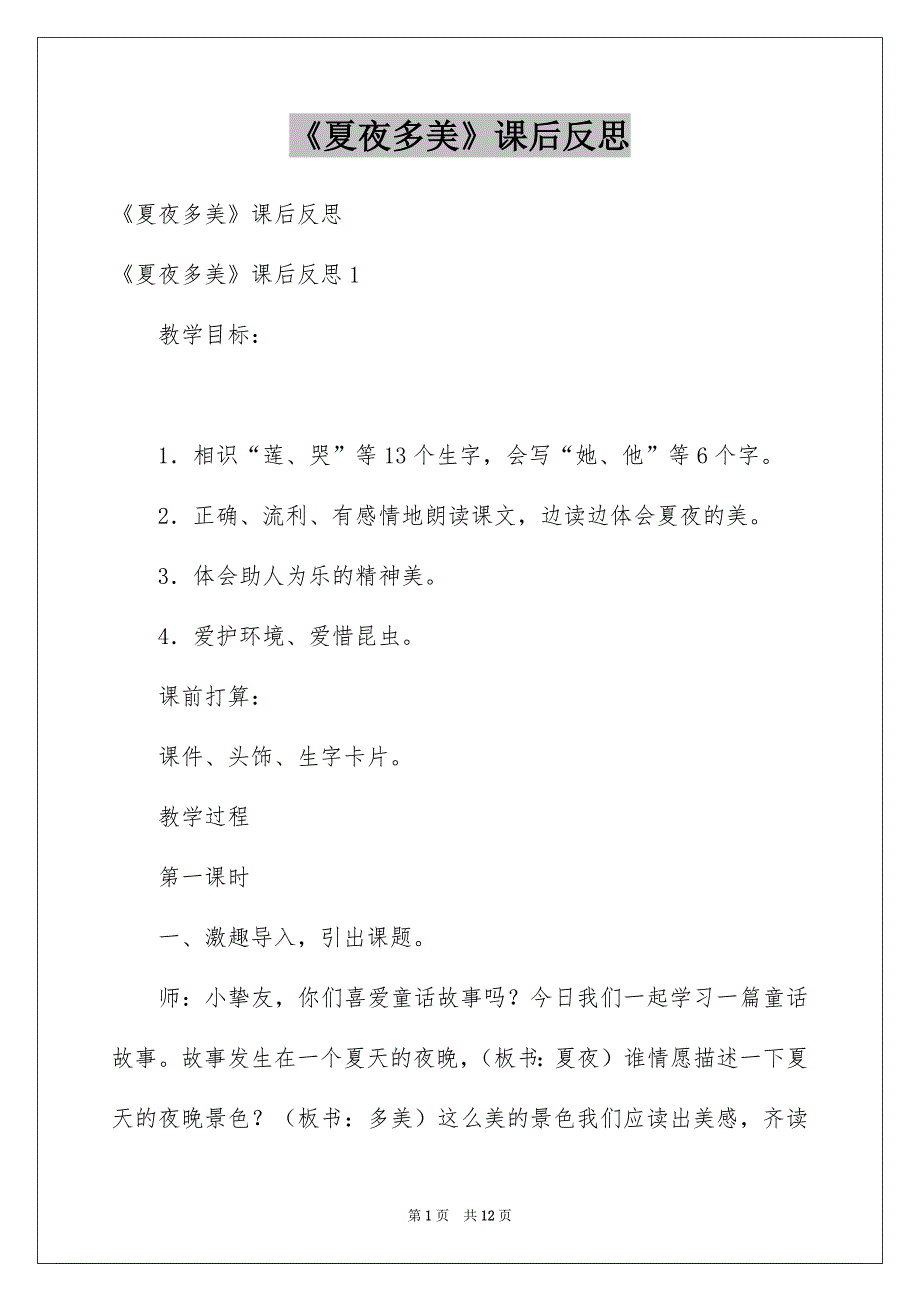 《夏夜多美》课后反思
《夏夜多美》课后反思
《夏夜多美》课后反思1
教学目标：
1．相识“莲、哭”等13个生字，会写“她、他”等6个字。
2．正确、流利、有感情地朗读课文，边读边体会夏夜的美。
3．体会助人为乐的精神美。
4．爱护环境、爱惜昆虫。
课前打算：
课件、头饰、生字卡片。
教学过程
第一课时
一、激趣导入，引出课题。
师：小挚友，你们喜爱童话故事吗？今日我们一起学习一篇童话
故事。故事发生在一个夏天的夜晚，（板书：夏夜）谁情愿描述一下夏
天的夜晚景色？（板书：多美）这么美的景色我们应读出美感，齐读
第1页 共12页